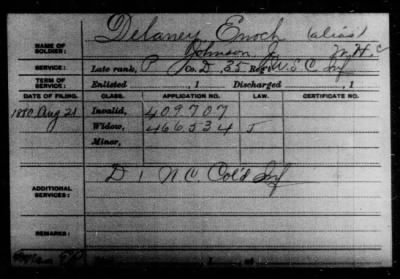 Delaney, Enoch (alias)
NAME OF SOLDIER: Johnson, J.
SERVICE: Late rank, P Co. D, 35 Reg't U.S.C. Inf
TERM OF SERVICE: Enlisted , 1 Discharged , 1
DATE OF FILING. CLASS. APPLICATION NO. LAW. CERTIFICATE NO.
1880 Aug 21 Invalid, 409707
Widow, 466534
Minor,
ADDITIONAL SERVICES: D 1 N.C. Col'd Inf
REMARKS: